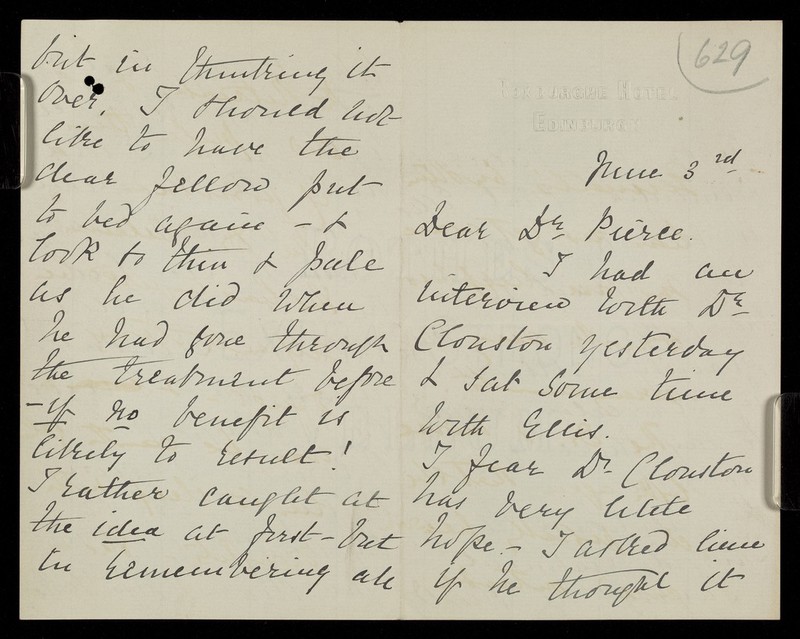 629
Edinburgh
June 3rd
Dear Dr Pierce.
I had an
interview with Dr
Clouston yesterday
& sat some time
with Ellis.
I fear Dr Clouston
has very little
hope. - I asked him
if he thought it
but in thinking it
over, I should not
like to have the
dear fellow put
to bed again - &
look so thin & pale
as he did when
he had gone through
the treatment before
- if no benefit is
likely to result!
I rather caught at
the idea at first - but
in remembering all